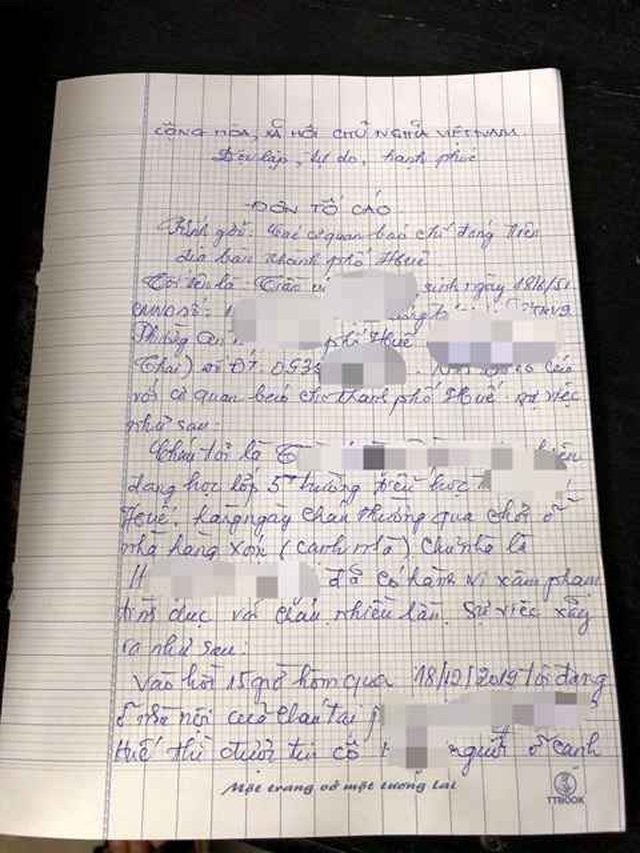 CỘNG HÒA, XÃ HỘI CHỦ NGHĨA VIỆT NAM.
Độc lập, tự do, hạnh phúc
ĐƠN TỐ CÁO
Kính gửi: Các cơ quan báo chí đóng trên
địa bàn thành phố Huế
Tôi tên là: Trần sinh ngày
CMND số:
Phường An phố Huế
số ĐT: 0534 cáo
với cơ quan báo chí thành phố Huế. sự việc
như sau:
Cháu tôi là hiện
đang học lớp 5 trường tiểu học
Huế. hàng ngày cháu thường qua chơi ở
nhà hàng xóm (cạnh nhà) chủ nhà là
H đã có hành vi xâm phạm
tình dục với cháu nhiều lần. Sự việc xảy
ra như sau:
Vào hồi 15 giờ hôm qua 18/12/2019 tôi đang
ở nhà nội của cháu tại
Huế thì được tin cô người ở cạnh
Một trang vở một tương lai
TTBOOK